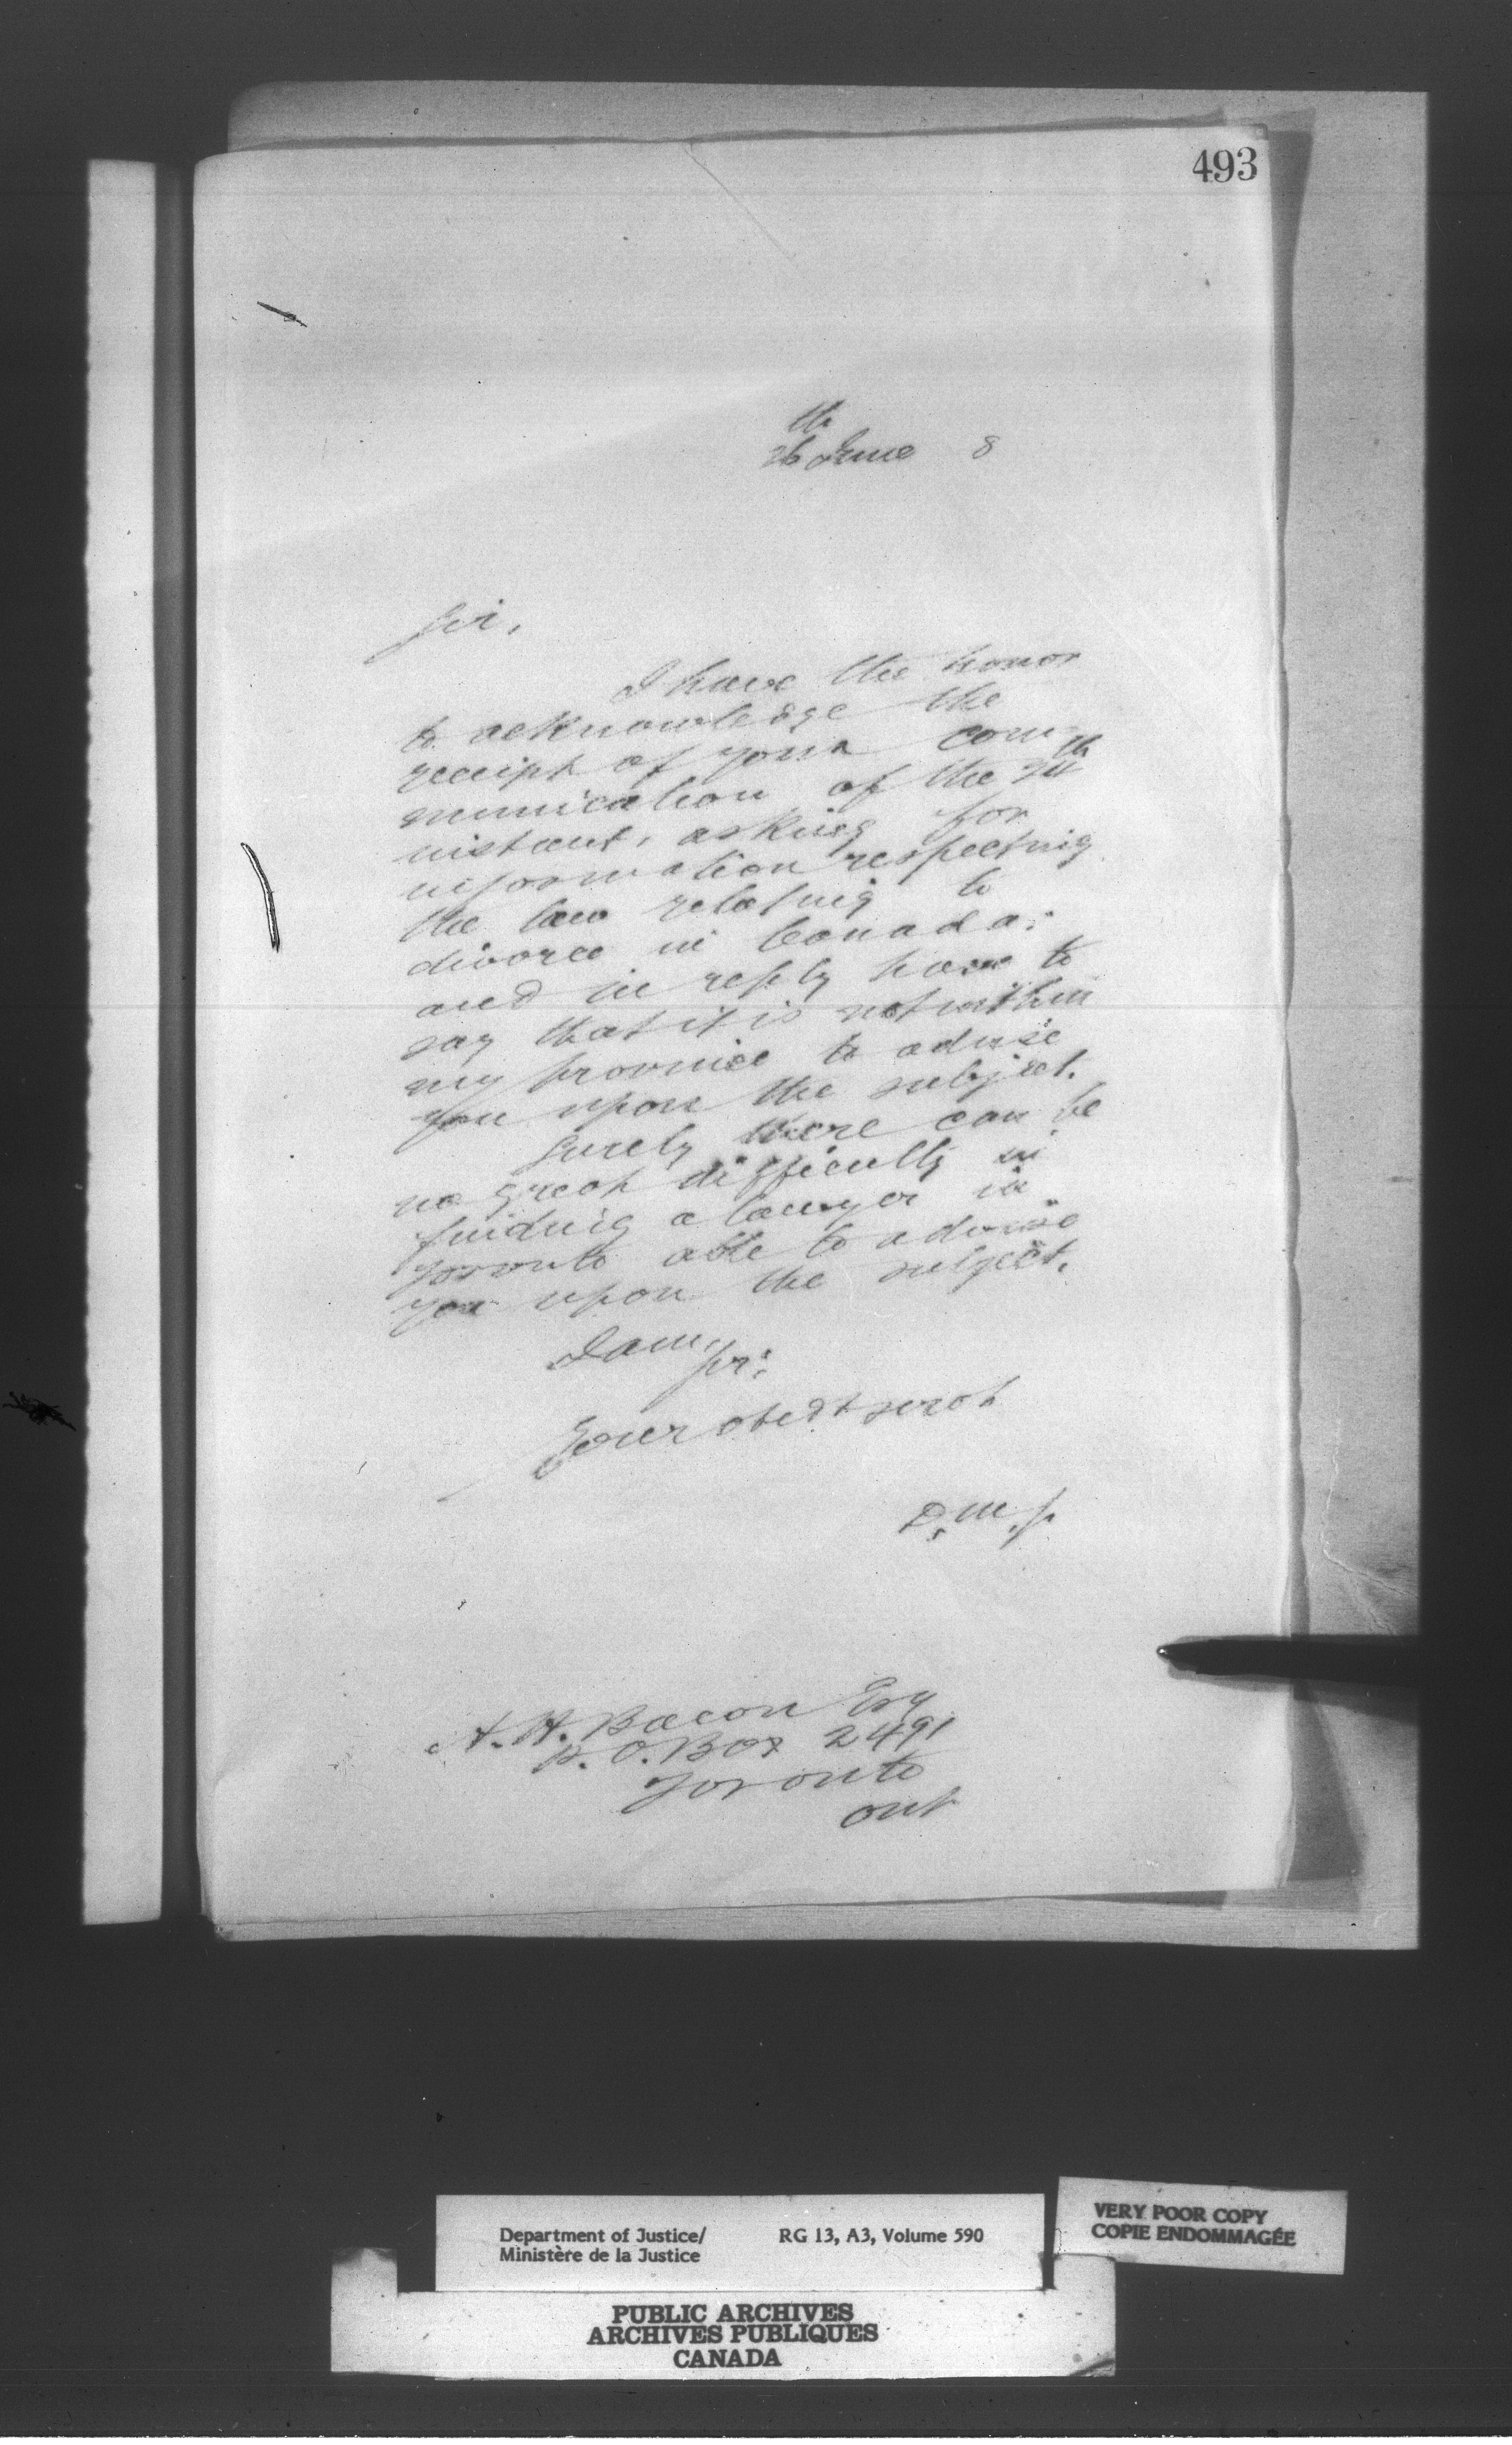 493
26th June 8
Sir,
I have the honor
to acknowledge the
receipt of your com-
munication of the 24th
instant, asking for
information respecting
the law relating to
divorce in Canada;
and in reply have to
say that it is not within
my province to advise
you upon the subject.
Surely there can be
no great difficulty in
finding a lawyer in
Toronto able to advise
you upon the subject.
I am,
Sir,
Your obedt servt
D.M.J.
A. H. Bacon Esq
P.O. Box 2491
Toronto
Ont
Department of Justice/ RG 13, A3, Volume 590
Ministère de la Justice
VERY POOR COPY
COPIE ENDOMMAGÉE
PUBLIC ARCHIVES
ARCHIVES PUBLIQUES
CANADA